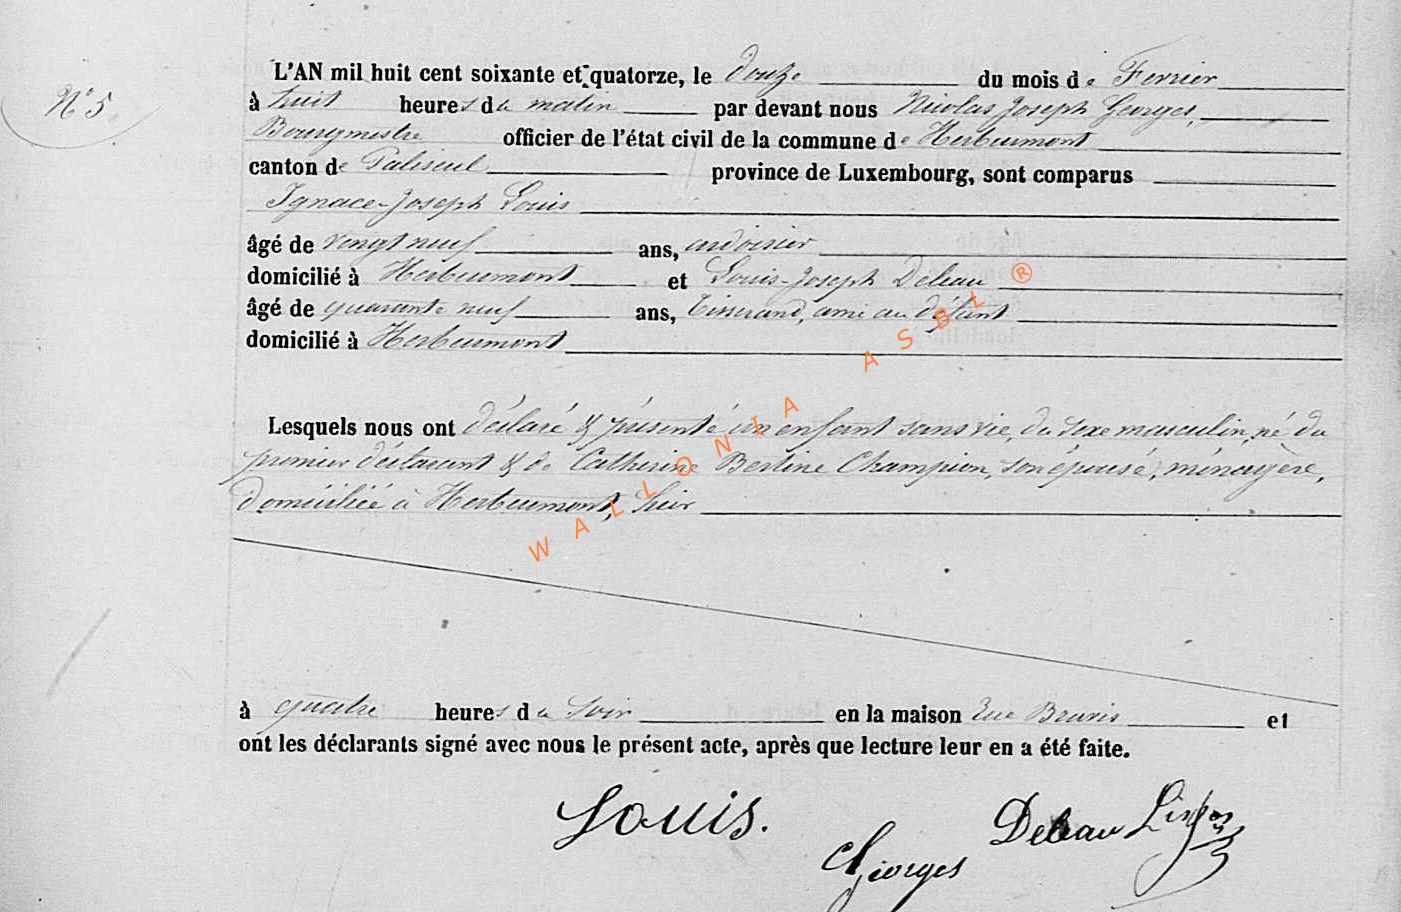 N° 5.
L'AN mil huit cent soixante et quatorze, le douze du mois de Fevrier
à huit heures du matin par devant nous Nicolas Joseph Georges,
Bourgmestre officier de l'état civil de la commune de Herbeumont
canton de Paliseul province de Luxembourg, sont comparus
Ignace-Joseph Louis
âgé de vingt neuf ans, ardoisier
domicilié à Herbeumont et Louis-Joseph Deleau
âgé de quarante neuf ans, Tisserand, ami au défunt
domicilié à Herbeumont
Lesquels nous ont déclaré & présenté un enfant sans vie, du sexe masculin, né du
premier déclarant & de Catherine Bertine Champion, son épouse, ménagère,
domiciliée à Herbeumont, hier
à quatre heures du soir en la maison et
ont les déclarants signé avec nous le présent acte, après que lecture leur en a été faite.
Louis.
Deleau
Georges
WALLONIA ASBL ®